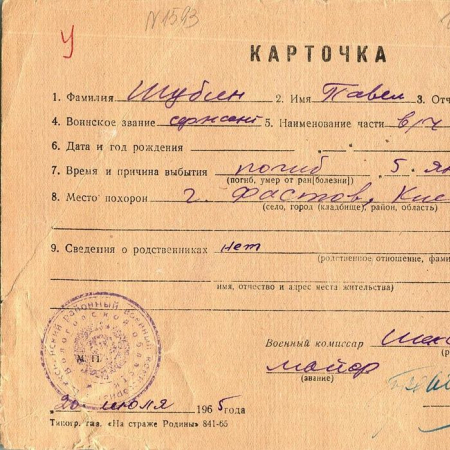 №1593
У
КАРТОЧКА
1. Фамилия Шубин 2. Имя Павел 3. Отч
4. Воинское звание сержант 5. Наименование части в/ч
6. Дата и год рождения
7. Время и причина выбытия погиб 5. ян
(погиб, умер от ран[болезни])
8. Место похорон г. Фастов, Кие
(село, город (кладбище), район, область)
9. Сведения о родственниках нет
(родственное отношение, фами
имя, отчество и адрес места жительства)
Военный комиссар
(р
майор
(звание)
№ 11
20 июля 1965 года
Типогр. газ. «На страже Родины» 841-65